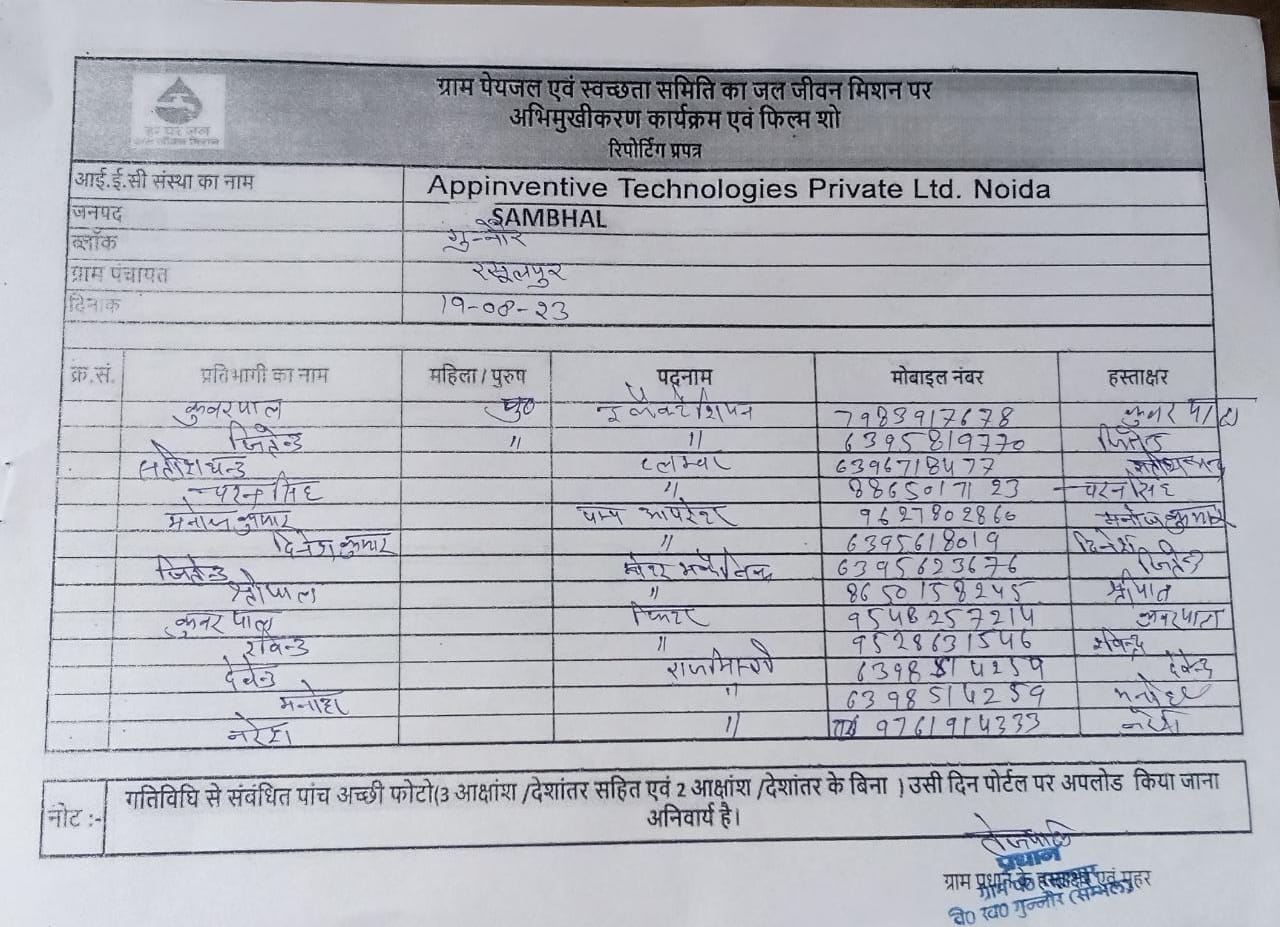 हर घर जल
जल जीवन मिशन
ग्राम पेयजल एवं स्वच्छता समिति का जल जीवन मिशन पर
अभिमुखीकरण कार्यक्रम एवं फिल्म शो
रिपोर्टिंग प्रपत्र
आई.ई.सी संस्था का नाम Appinventive Technologies Private Ltd. Noida
जनपद SAMBHAL
ब्लॉक गुन्नौर
ग्राम पंचायत रसूलपुर
दिनाक 19-08-23
क्र.सं. प्रतिभागी का नाम महिला / पुरुष पदनाम मोबाइल नंबर हस्ताक्षर
कुवरपाल पु० 7983917678 कुवरपाल
जितेन्द्र " " 6395819770 जितेन्द्र
सतीशचन्द्र 6396718477
चरन सिंह " 8865017123 चरन सिंह
मनोज कुमार पम्प आपरेटर 9627802860 मनोज कुमार
दिनेश कुमार " 6395618019 दिनेश
जितेन्द्र 6395623676 जितेन्द्र
श्रीपाल " 8650158245 श्रीपाल
कुवर पाल फिटर 9548257214
रविन्द्र " 9528631546 रविन्द्र
देवेन्द्र राजमिस्त्री 6398514259 देवेन्द्र
मनोहर " 6398514259
नरेश " 9761914333 नरेश
नोट :- गतिविधि से संबंधित पांच अच्छी फोटो(3 आक्षांश /देशांतर सहित एवं 2 आक्षांश /देशांतर के बिना ) उसी दिन पोर्टल पर अपलोड किया जाना
अनिवार्य है।
तेजपाल
प्रधान
ग्राम प्रधान के हस्ताक्षर एवं मुहर
वि० ख० गुन्नौर (सम्भल)